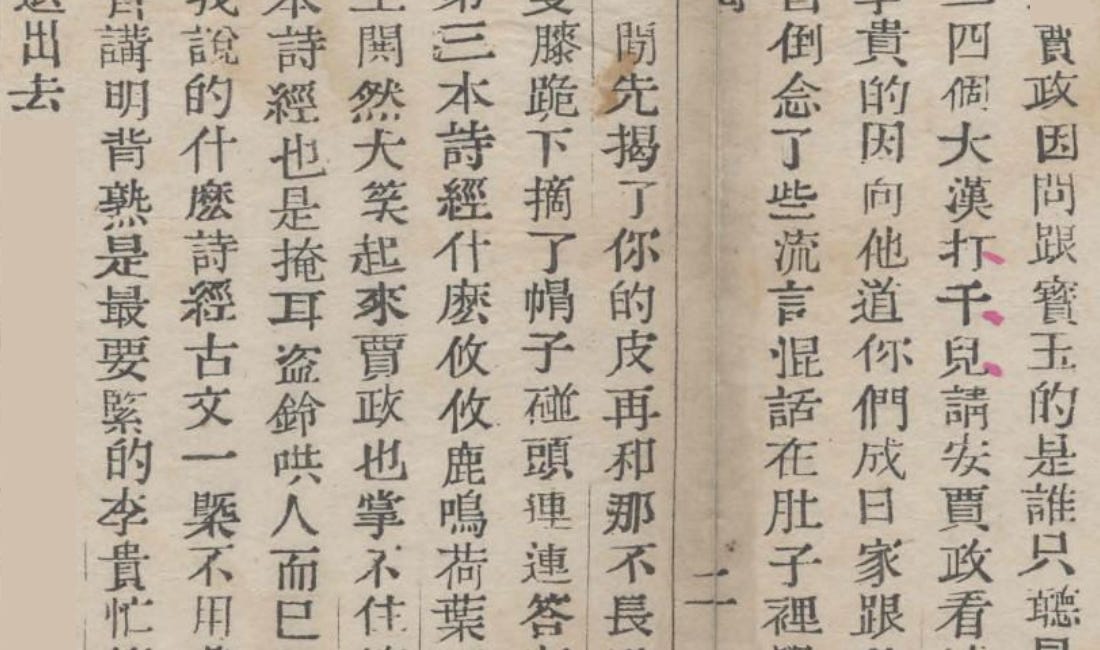 賈政因問跟寳玉的是誰只聽
四個大漢打千兒請安賈政看
貴的因向他道你們成日家跟
倒念了些流言混話在肚子裡
二
閒先揭了你的皮再和那不長
膝跪下摘了帽子碰頭連連答
第三本詩經什麽攸攸鹿鳴荷葉
閧然大笑起來賈政也掌不住
本詩經也是掩耳盗鈴哄人而已
我說的什麽詩經古文一槩不用
講明背熟是最要緊的李貴忙
退出去